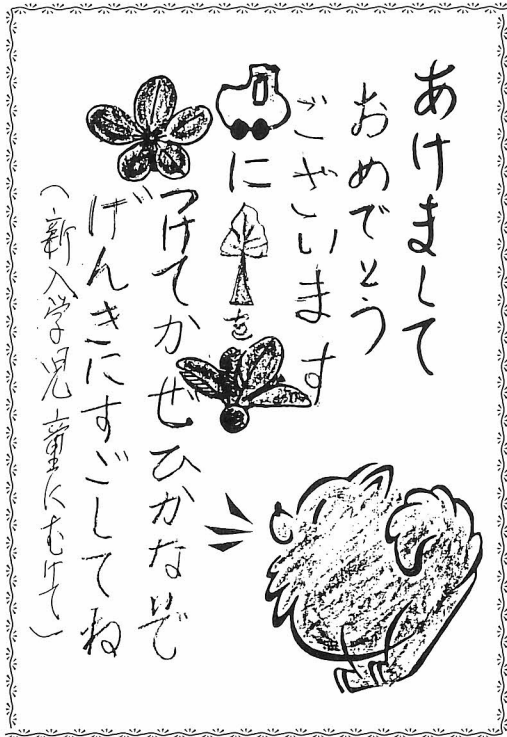 あけまして
おめでとう
ございます
に を
つけてかぜひかないで
げんきにすごしてね
(新入学児童にむけて)